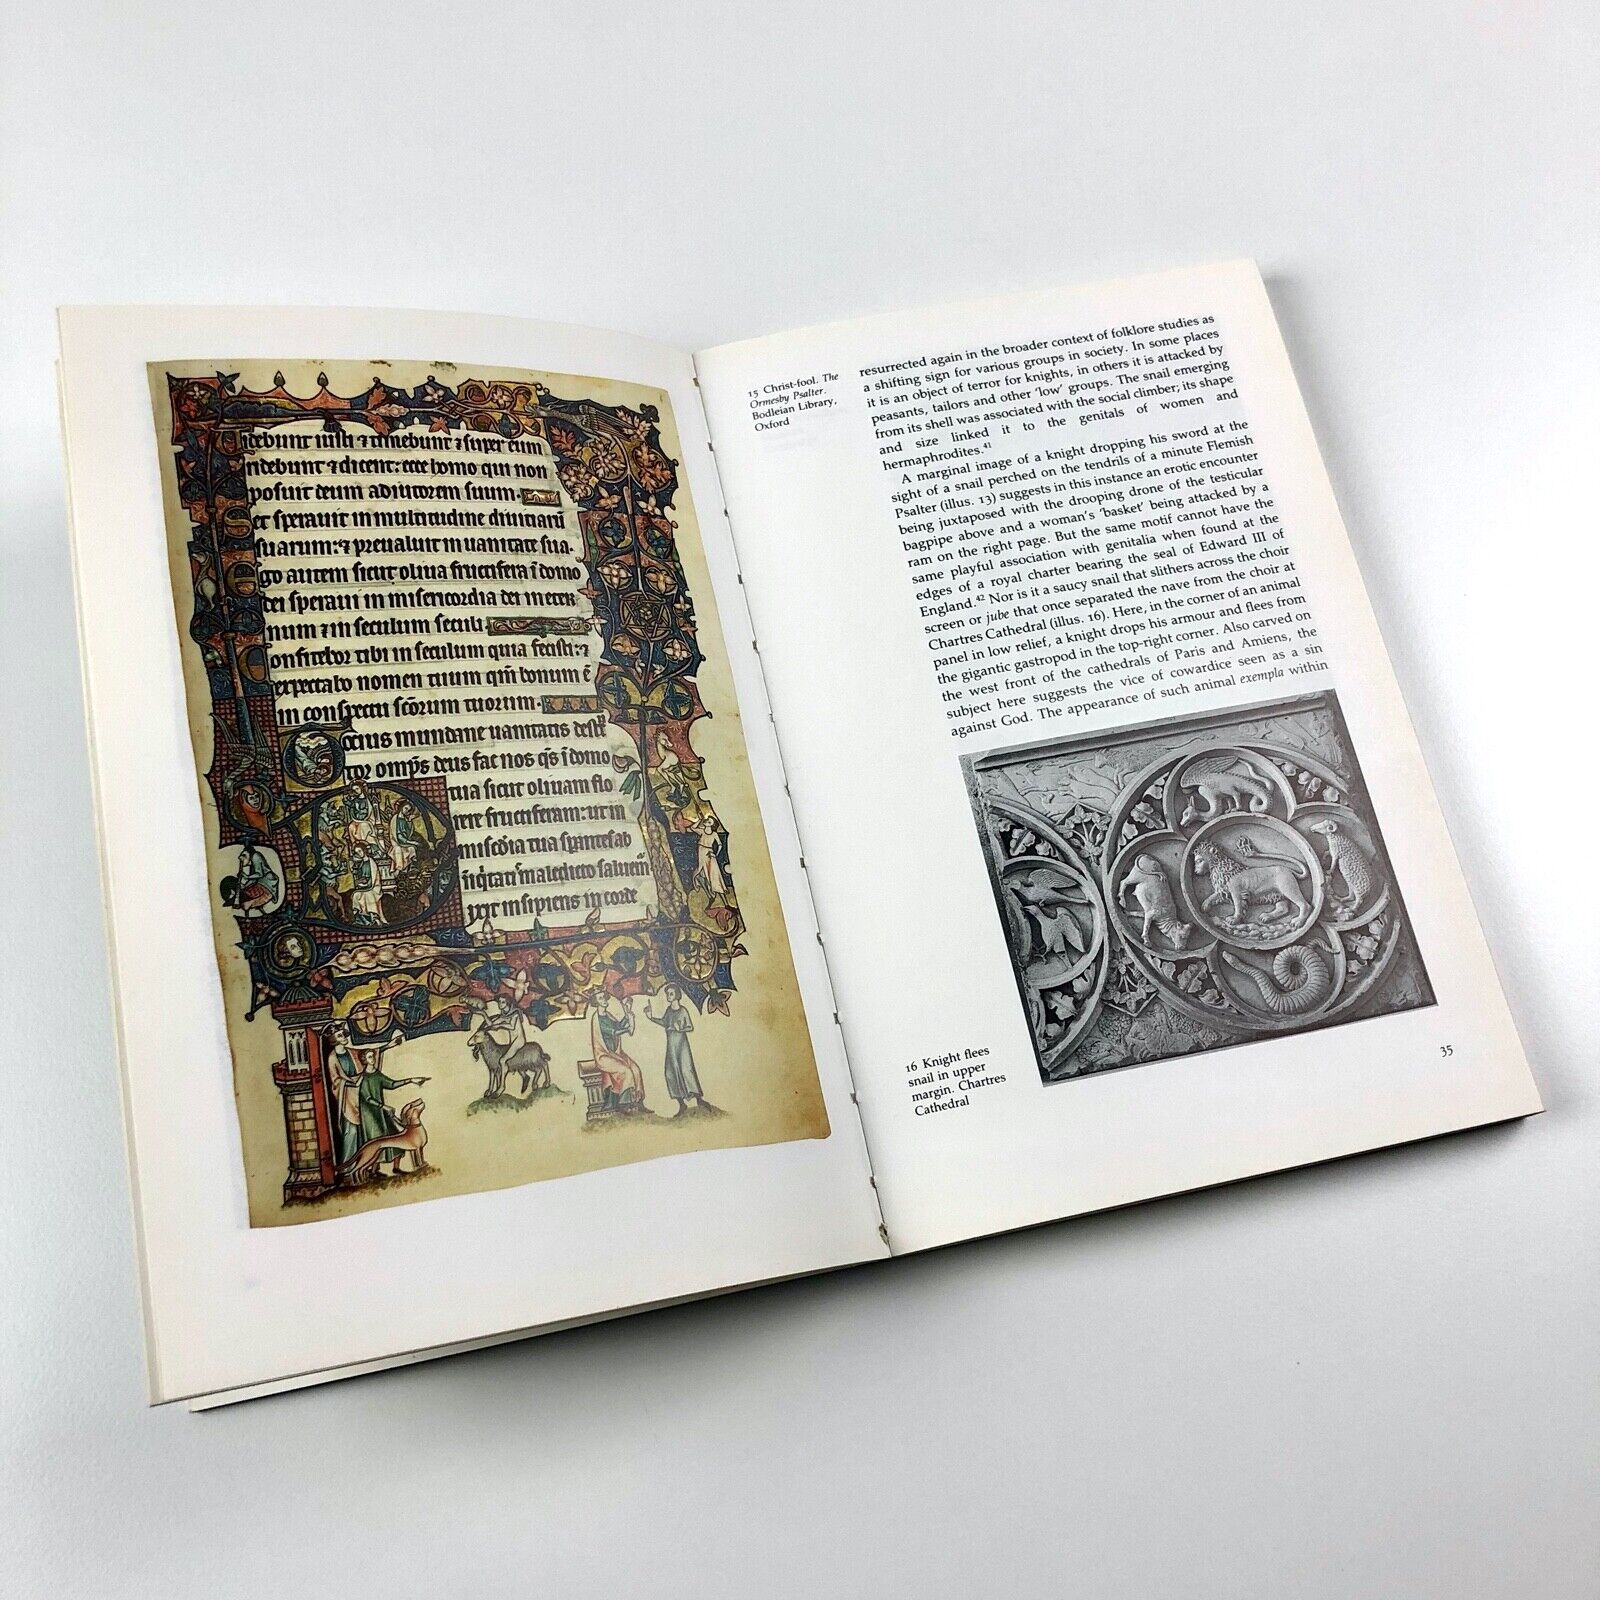 videbunt iusti & timebunt & super eum
ridebunt & dicent: ecce homo qui non
posuit deum adiutorem suum.
Set speravit in multitudine diviciarū
suarum: & prevaluit in vanitate sua.
Ego autem sicut oliva fructifera ī domo
dei speravi in misericordia dei in eter
num & in seculum seculi
Confitebor tibi in seculum quia fecisti: &
expectabo nomen tuum qm̄ bonum ē
in conspectu scōrum tuorum
ocius mundane vanitatis
omp̄s deus fac nos q̄s ī domo
tua sicut olivam
fructiferam: ut in
tua
maledicto
ixit insipiens in corde
15 Christ-fool. The
Ormesby Psalter.
Bodleian Library,
Oxford
resurrected again in the broader context of folklore studies as
a shifting sign for various groups in society. In some places
it is an object of terror for knights, in others it is attacked by
peasants, tailors and other 'low' groups. The snail emerging
from its shell was associated with the social climber; its shape
and size linked it to the genitals of women and
hermaphrodites.⁴¹
A marginal image of a knight dropping his sword at the
sight of a snail perched on the tendrils of a minute Flemish
Psalter (illus. 13) suggests in this instance an erotic encounter
being juxtaposed with the drooping drone of the testicular
bagpipe above and a woman's 'basket' being attacked by a
ram on the right page. But the same motif cannot have the
same playful association with genitalia when found at the
edges of a royal charter bearing the seal of Edward III of
England.⁴² Nor is it a saucy snail that slithers across the choir
screen or jube that once separated the nave from the choir at
Chartres Cathedral (illus. 16). Here, in the corner of an animal
panel in low relief, a knight drops his armour and flees from
the gigantic gastropod in the top-right corner. Also carved on
the west front of the cathedrals of Paris and Amiens, the
subject here suggests the vice of cowardice seen as a sin
against God. The appearance of such animal exempla within
16 Knight flees
snail in upper
margin. Chartres
Cathedral
35